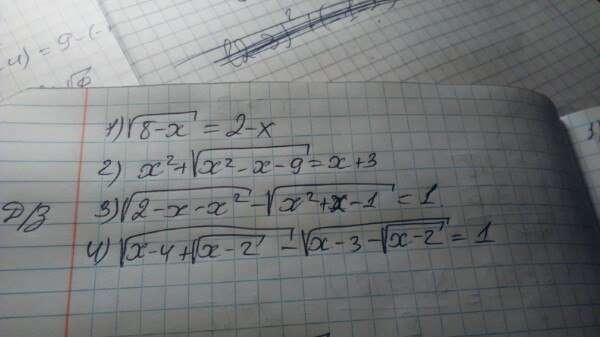 1) √(8-x) = 2-x
2) x² + √(x² - x - 9) = x + 3
Д/З
3) √(2-x-x²) - √(x²+x-1) = 1
4) √(x-4+√(x-2)) - √(x-3-√(x-2)) = 1